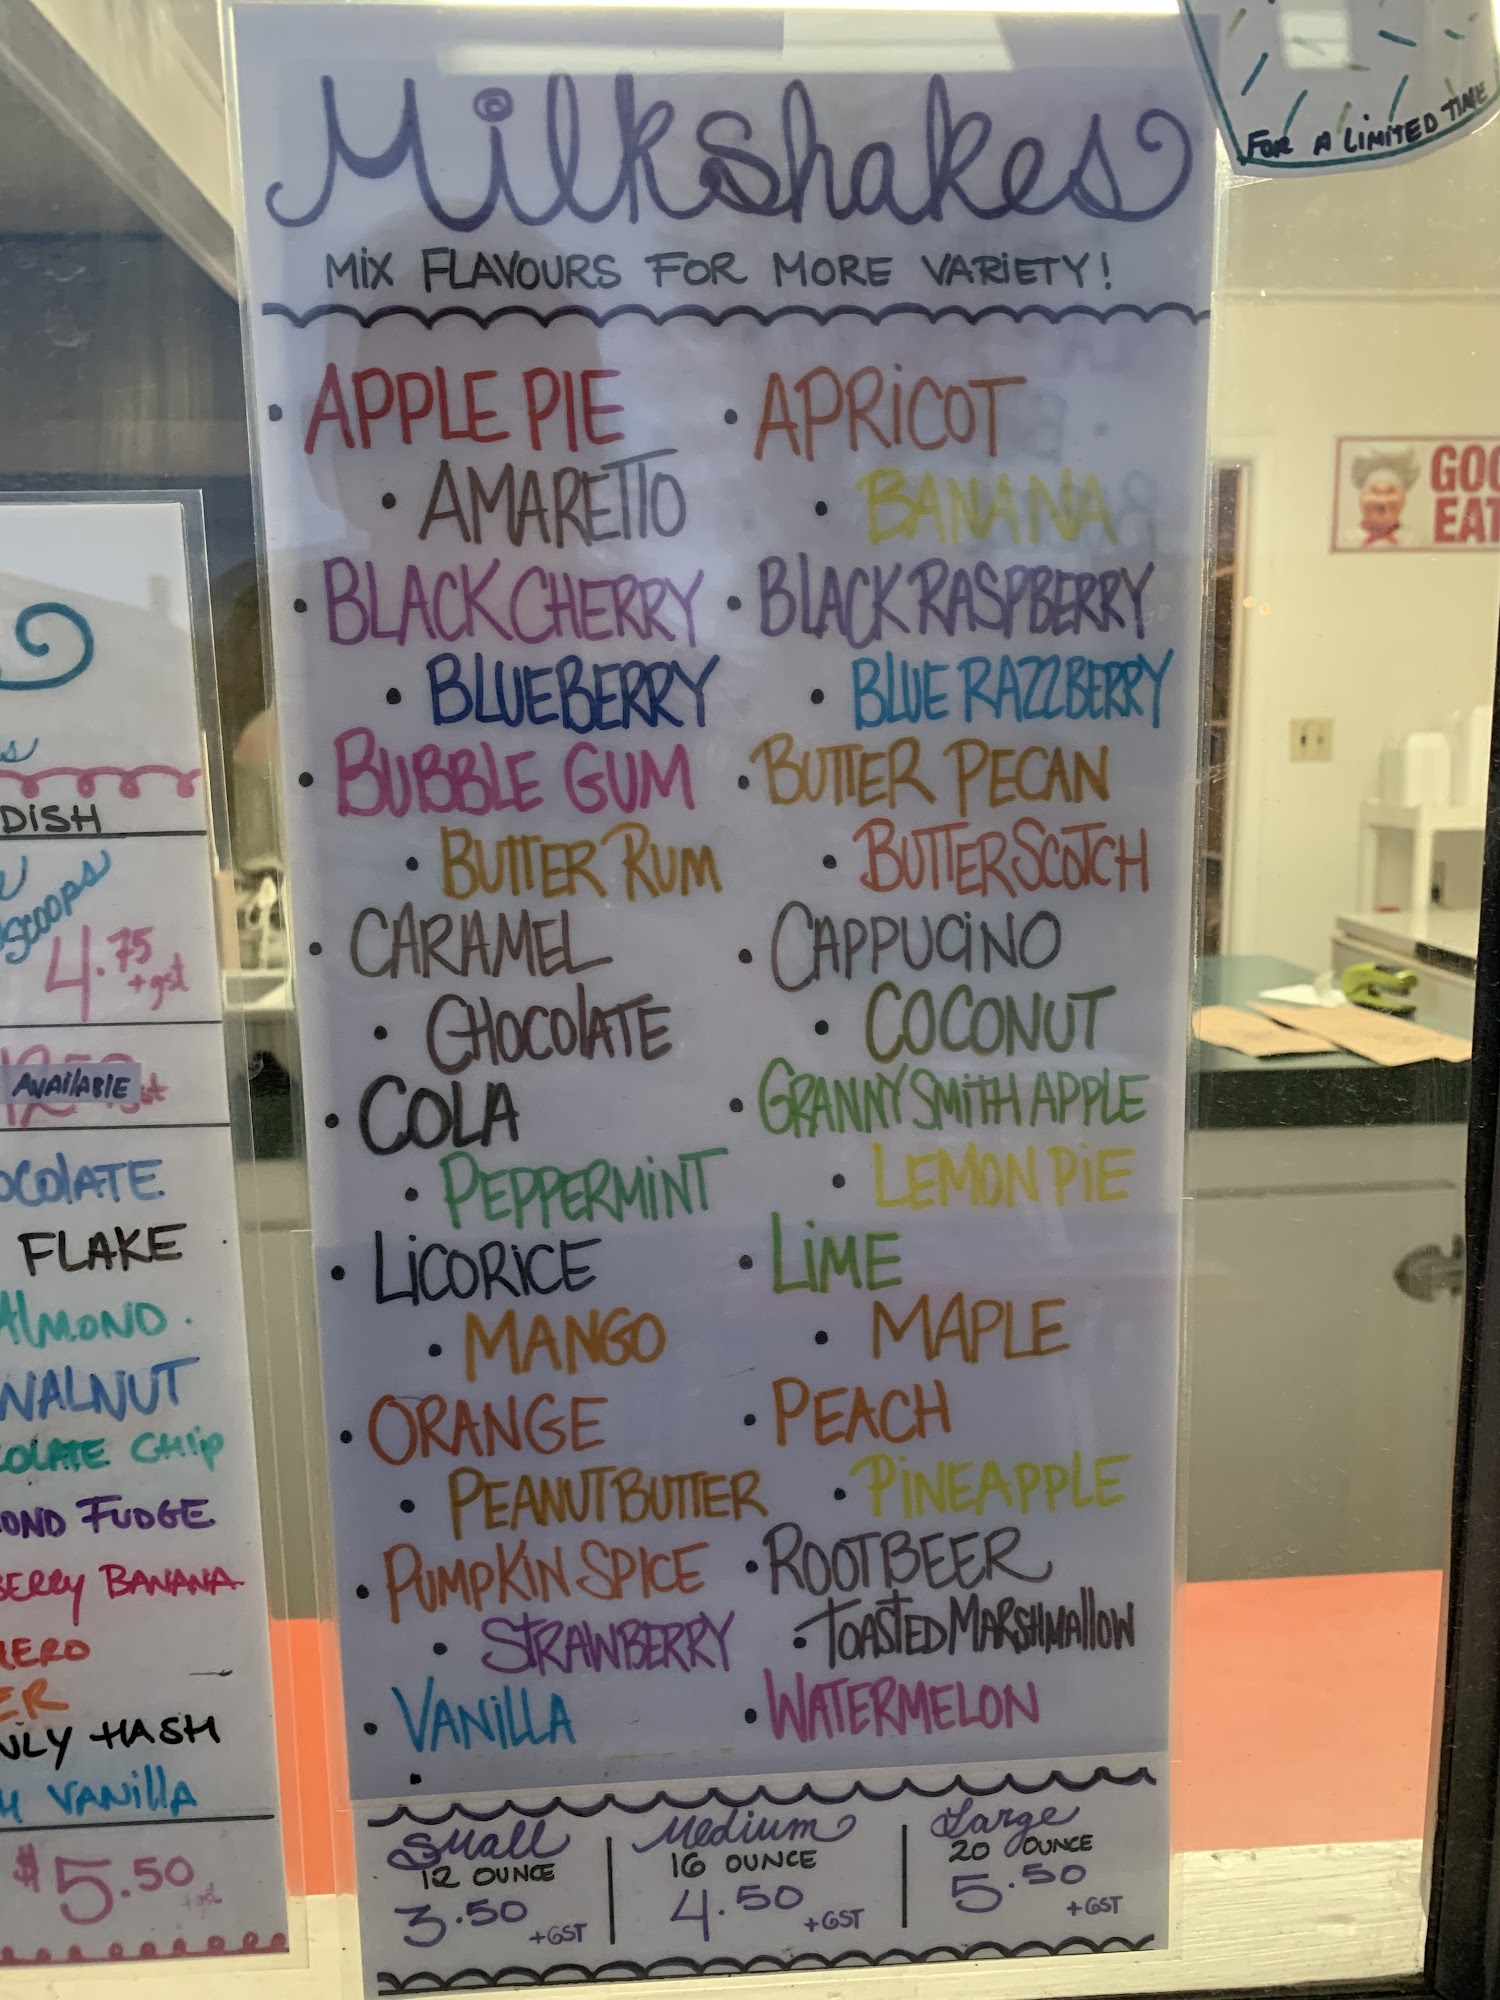 Milkshakes
MIX FLAVOURS FOR MORE VARIETY!
• APPLE PIE
• APRICOT
• AMARETTO
• BANANA
• BLACK CHERRY
• BLACK RASPBERRY
• BLUEBERRY
• BLUE RAZZBERRY
• BUBBLE GUM
• BUTTER PECAN
• BUTTER RUM
• BUTTERSCOTCH
• CARAMEL
• CAPPUCINO
• CHOCOLATE
• COCONUT
• COLA
• GRANNY SMITH APPLE
• PEPPERMINT
• LEMON PIE
• LICORICE
• LIME
• MANGO
• MAPLE
• ORANGE
• PEACH
• PEANUT BUTTER
• PINEAPPLE
• PUMPKIN SPICE
• ROOTBEER
• STRAWBERRY
• TOASTED MARSHMALLOW
• VANILLA
• WATERMELON
•
Small
12 OUNCE
3.50 +GST
Medium
16 OUNCE
4.50 +GST
Large
20 OUNCE
5.50 +GST
FOR A LIMITED TIME
GOO
EAT
DISH
SCOOPS
4.75
+gst
AVAILABLE
OCOLATE
FLAKE
ALMOND
WALNUT
COLATE CHIP
OND FUDGE
BERRY BANANA
HERO
ER
NLY HASH
VANILLA
$5.50